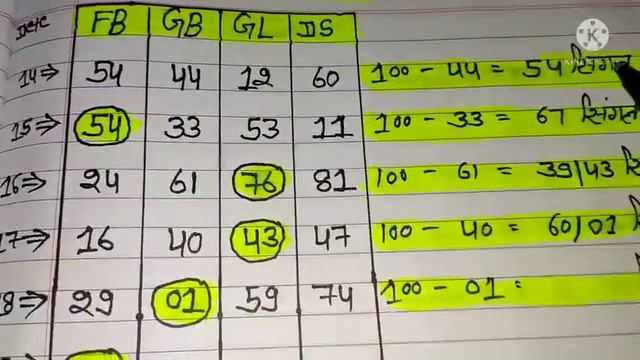 Date FB GB GL DS
14⇒ 54 44 12 60 100 - 44 = 54 सिंगल
15⇒ 54 33 53 11 100 - 33 = 67 सिंगल
16⇒ 24 61 76 81 100 - 61 = 39/43 सि
17⇒ 16 40 43 47 100 - 40 = 60/01 सि
8⇒ 29 01 59 74 100 - 01 =